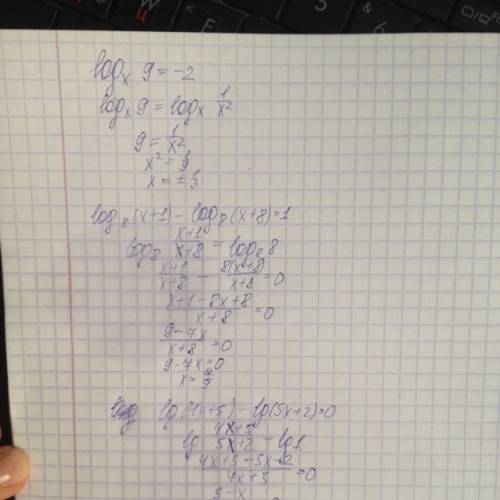 log_x 9 = -2
log_x 9 = log_x 1/x²
9 = 1/x²
x² = 1/9
x = ± 1/3
log_8 (x+1) - log_8 (x+8) = 1
log_8 (x+1)/(x+8) = log_8 8
(x+1)/(x+8) - 8(x+8)/(x+8) = 0
(x+1-8x+8)/(x+8) = 0
(9-7x)/(x+8) = 0
9-7x=0
lg(4x+5) - lg(5x+2)=0
lg (4x+5)/(5x+2) = lg1